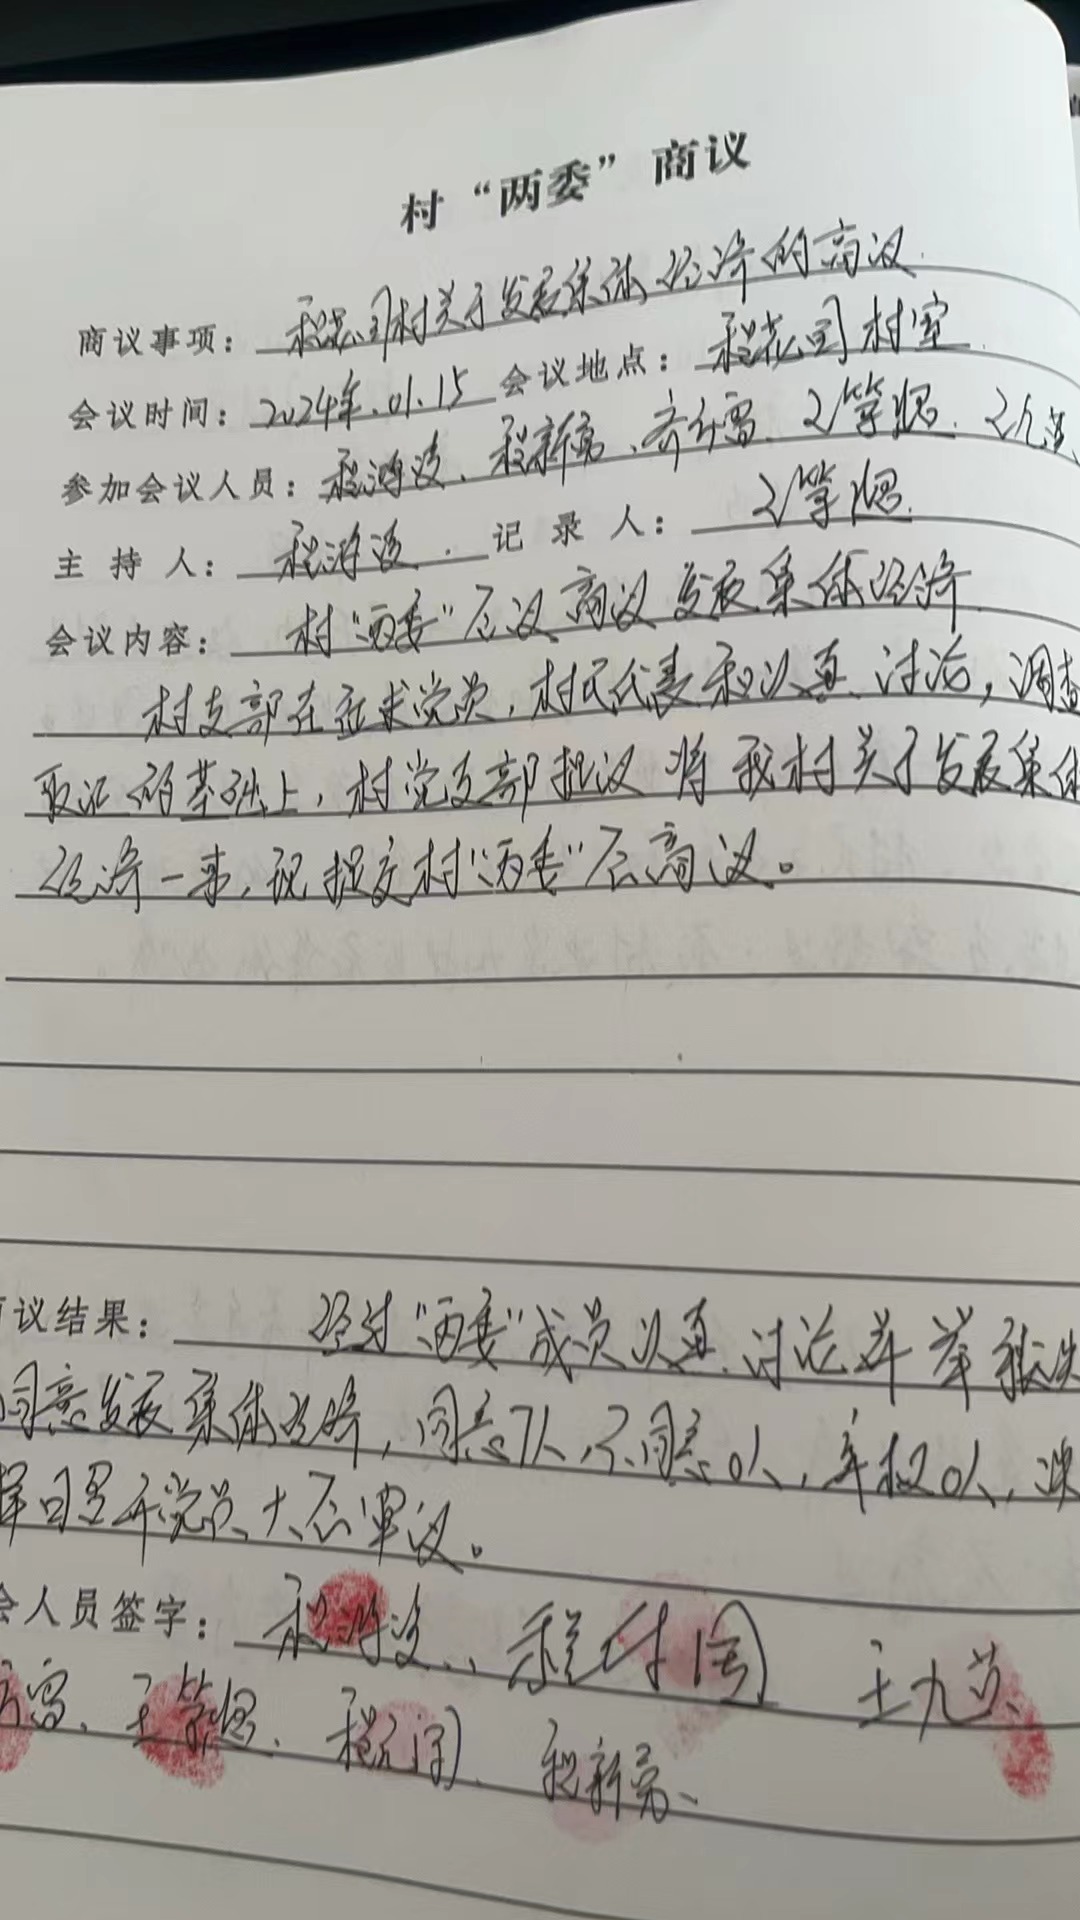 村“两委”商议
商议事项：程花园村关于发展集体经济的商议.
会议时间：2024年.01.15 会议地点：程花园村室.
参加会议人员：程鸿凌、程新亮、齐雪、王九苙、
主持人：程鸿凌. 记录人：
会议内容：村“两委”会议商议发展集体经济.
村支部在征求党员，村民代表和认真讨论，调查
取证的基础上，村党支部拟议将我村关于发展集体
经济一事，现提交村“两委”会商议。
议结果：经过“两委”成员认真讨论并举表决
同意发展集体经济，同意7人，不同意0人，弃权0人，决
择日召开党员大会审议。
会人员签字：程鸿凌、程付阁 王九
雪、王、程、程新亮、